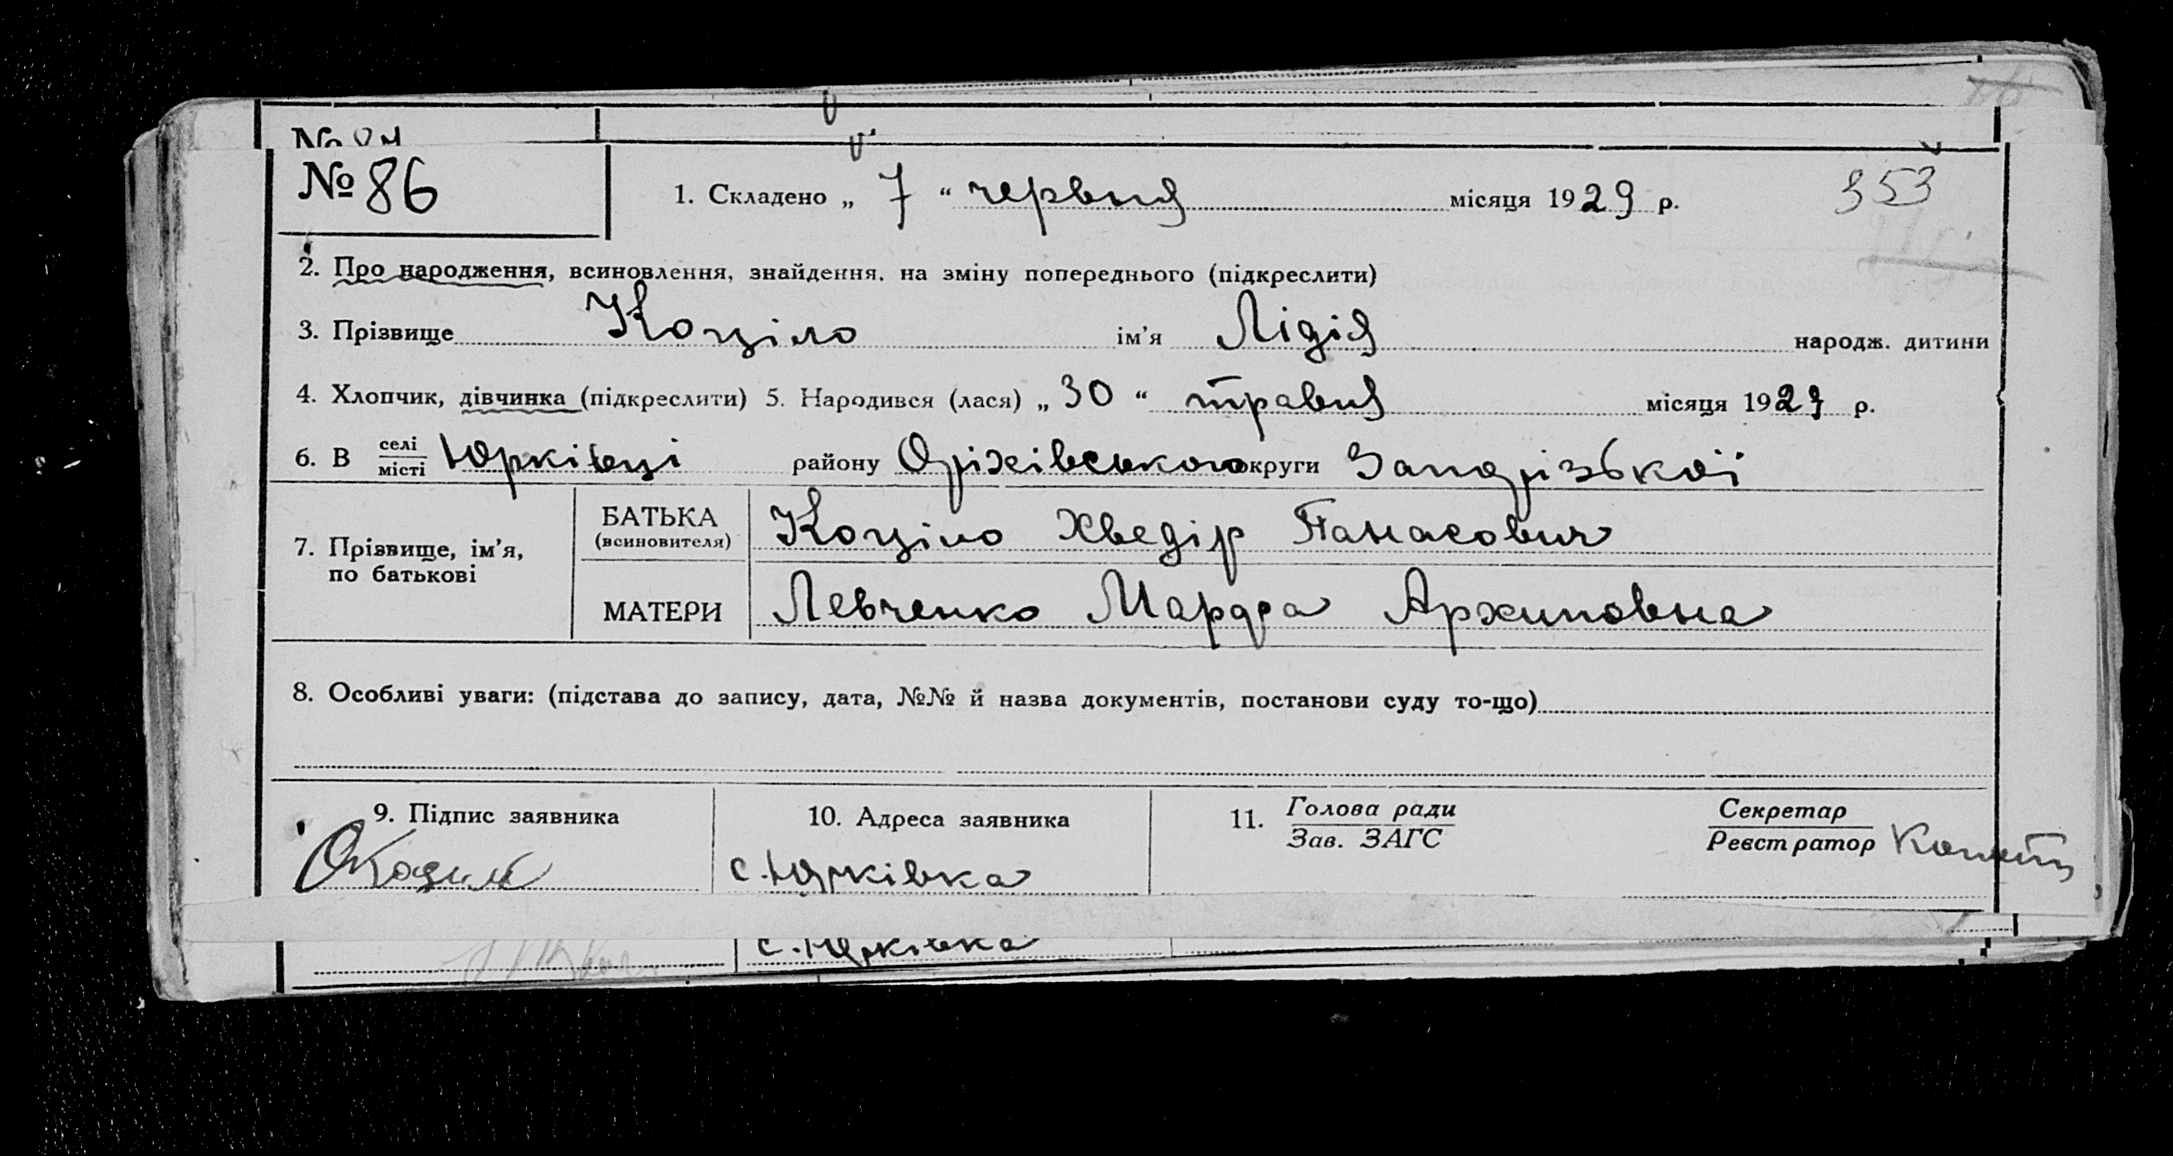 № 86
1. Складено „ 7 “ червня місяця 1929 р.
353
2. Про народження, всиновлення, знайдення. на зміну попереднього (підкреслити)
3. Прізвище Коціло ім’я Лідія народж. дитини
4. Хлопчик, дівчинка (підкреслити) 5. Народився (лася) „ 30 “ травня місяця 1929 р.
6. В селі/місті Юрківці району Оріхівського округи Запорізької
7. Прізвище, ім’я,
по батькові
БАТЬКА
(всиновителя)
Коціло Хведір Панасович
МАТЕРИ
Левченко Марфа Архиповна
8. Особливі уваги: (підстава до запису, дата, №№ й назва документів, постанови суду то-що)
9. Підпис заявника
10. Адреса заявника
с. Юрківка
11. Голова ради
Зав. ЗАГС
Секретар
Реєстратор
с. Юрківка